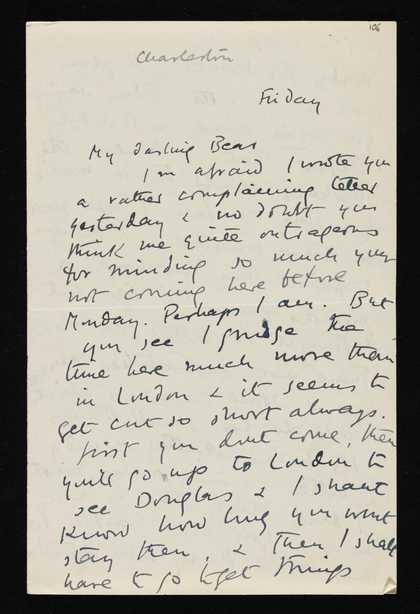 106
Charleston
Friday
My darling Bear
I'm afraid I wrote you
a rather complaining letter
yesterday & no doubt you
think me quite outrageous
for minding so much your
not coming here before
Monday. Perhaps I am. But
you see I grudge the
time here much more than
in London & it seems to
get cut so short always.
First you don't come, then
you'll go up to London to
see Douglas & I shant
know how long you wont
stay then, & then I shall
have to go & get things